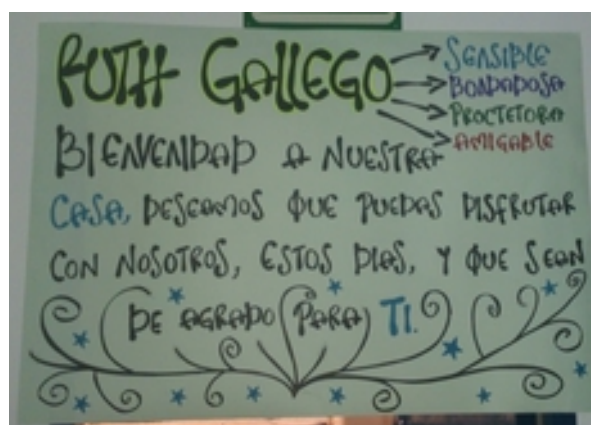 RUTH GALLEGO
SENSIBLE
BONDADOSA
PROCTETORA
AMIGABLE
BIENVENIDAD A NUESTRA
CASA, DESEAMOS QUE PUEDAS DISFRUTAR
CON NOSOTROS, ESTOS DIAS, Y QUE SEAN
DE AGRADO PARA TI.